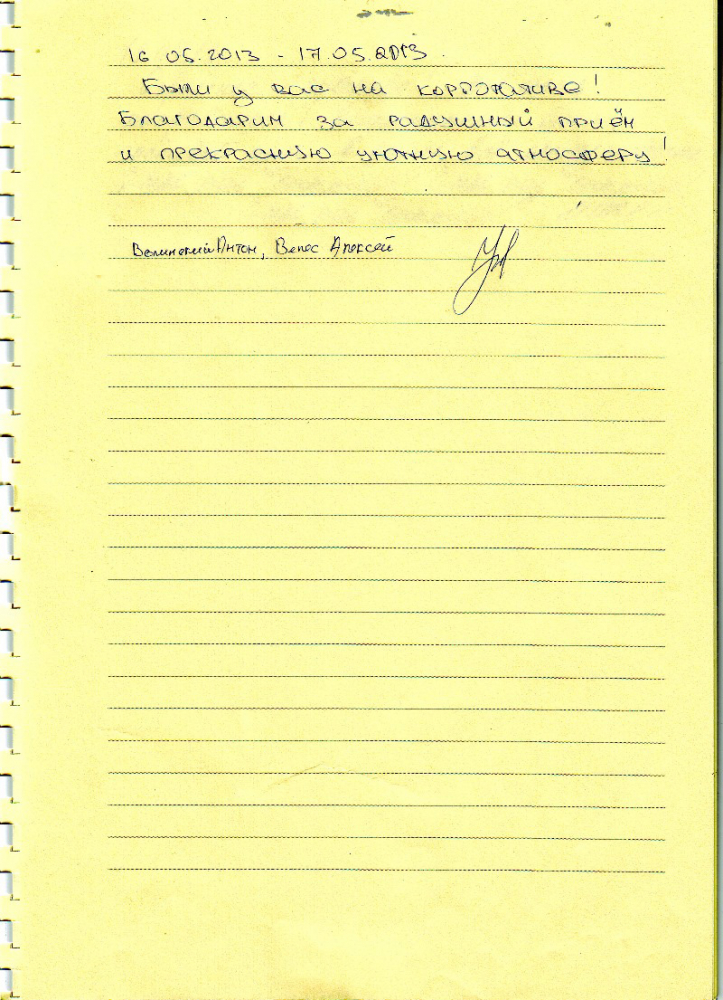 16 05.2013 - 17.05.2013.
Были у вас на корпоативе!
Благодарим за радушный приём
и прекрасную уютную атмосферу!
Антон, Велес Алексей